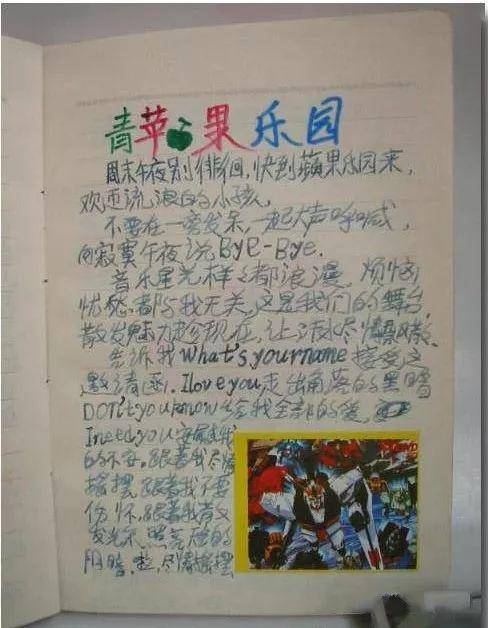 青苹果乐园
周末午夜别徘徊,快到蘋果乐园来,
欢迎流浪的小孩,
不要在一旁发呆,一起大声呼喊,
向寂寞午夜说Bye-Bye.
音乐星光样样都浪漫,烦恼
忧愁都与我无关,这是我们的舞台,
散发魅力趁现在,让汗水尽情飘散.
告诉我what's your name 接受这
邀请函.I love you走出角落的黑暗
DON't you know 给我全部的
I need you 安
的不安.跟着我尽情
摇摆.跟着我不要
伤怀.跟着我
发光 照亮
阴暗.啦,尽情摇摆